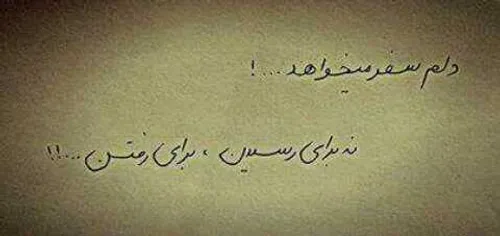 دلم سفر میخواهد....!
نه برای رسیدن ، برای رفتن....!!